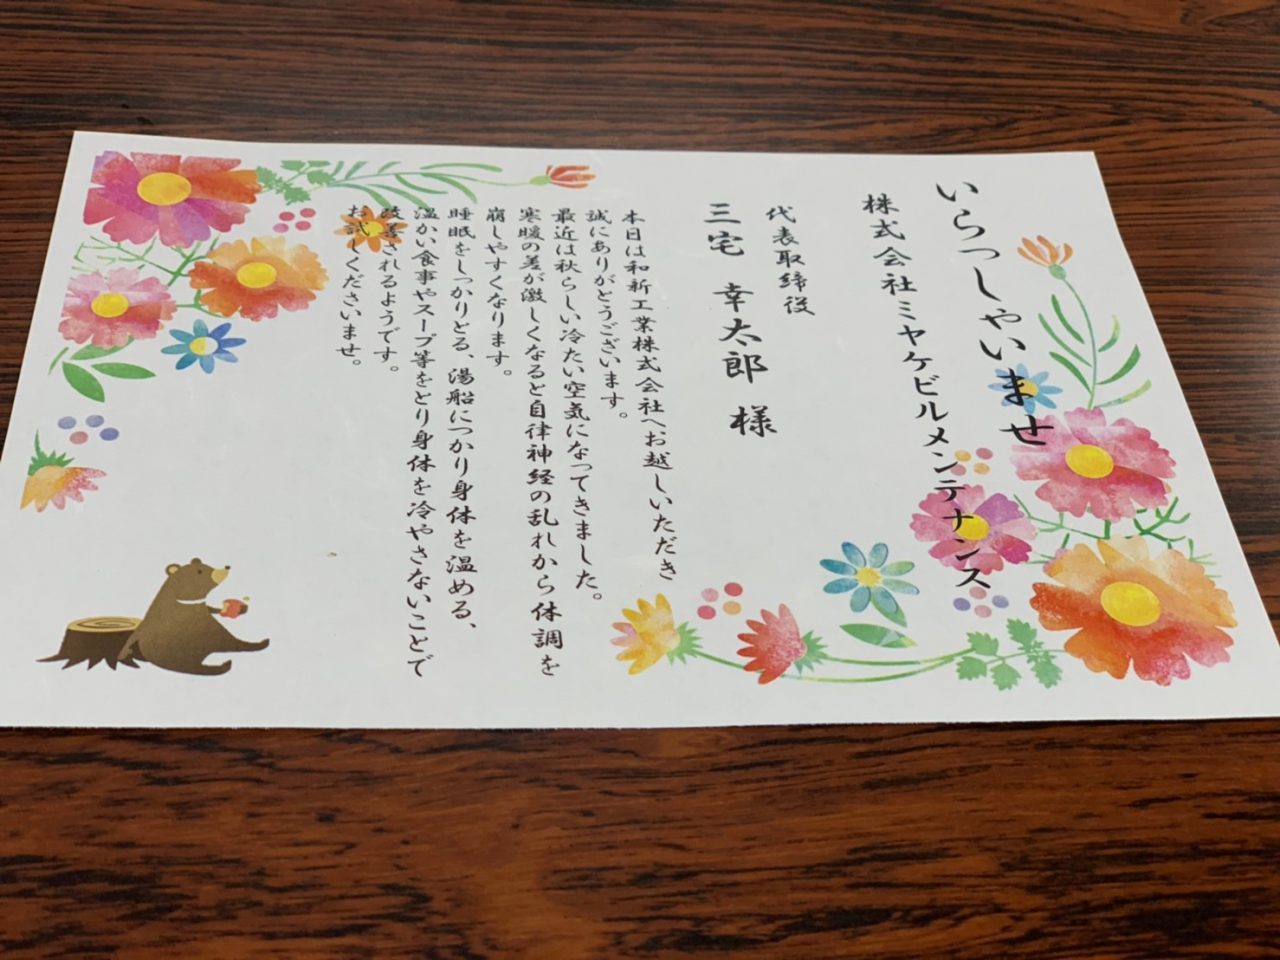 いらっしゃいませ
株式会社ミヤケビルメンテナンス
代表取締役
三宅 幸太郎 様
本日は和新工業株式会社へお越しいただき
誠にありがとうございます。
最近は秋らしい冷たい空気になってきました。
寒暖の差が激しくなると自律神経の乱れから体調を
崩しやすくなります。
睡眠をしっかりとる、湯船につかり身体を温める、
温かい食事やスープ等をとり身体を冷やさないことで
改善されるようです。
お試しくださいませ。